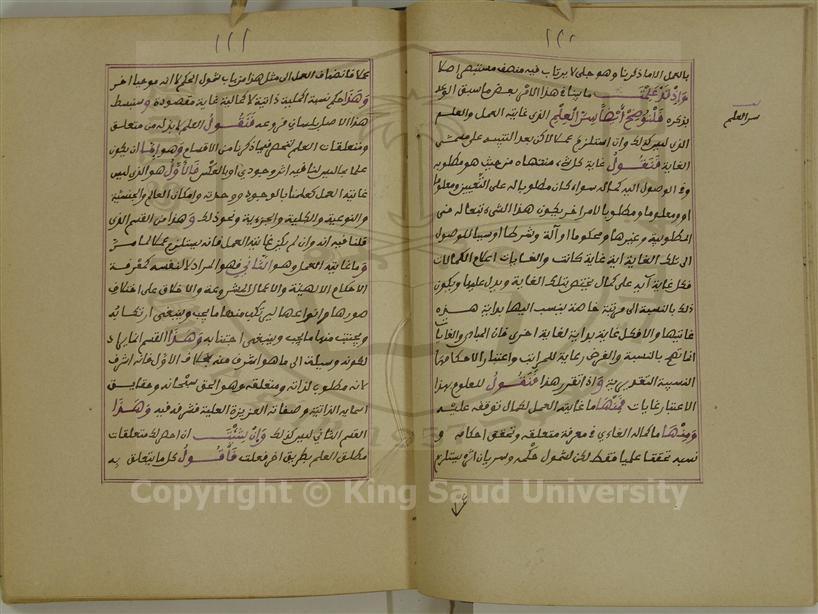 ١٢٠
سر العلم
بالعمل الا ما ذكرنا وهو جلي لا يرتاب فيه منصف مستبصر اصلا
واذ قد علمت ما بيناه في هذا الامر بعد ما سبق الوعد
بذكره فلنوضح ايضا سر العلم الذي غايته العمل والعلم
الذي ليس كذلك وان استلزم عملا لكن بعد التنبيه على معنى
الغاية فنقول غاية كل شيء منتهاه من حيث هو مطلوبه
وفي الوصول اليه كماله سواء كان مطلوبا له على التعيين ومعلوما
او ومعلوما ومطلوبا لامر اخر يكون هذا الشيء تبعا له في
المطلوبية وغيرها ومحكوما او آلة وشرطا وسببا للوصول
الى تلك الغاية اية غاية كانت والغايات اعلام الكمالات
فكل غاية آية على كمال يختص بتلك الغاية ويدل عليها ويكون
ذلك بالنسبة الى مرتبة خاصة ينسب اليها بداية هذه
غايتها والا فكل غاية بداية لغاية اخرى فان المبادي والغايات
انما هو بالنسبة والفرض رعاية للمراتب واعتبار الاحكامها
النسبية التقديرية واذا تقرر هذا فنقول للعلوم بهذا
الاعتبار غايات فمنها ما غايته العمل لكمال توقفه عليه
ومنها ما كماله الغائي في معرفة متعلقه وتحقق احكامه و
نسبه تحققا علميا فقط لكن لشمول حكمه وسريان اثره يستلزم
١٢١
عملا فانضياف العمل الى مثل هذا من باب شمول الحكم لا انه موجبا اخر
وهذا حكم نسبة اصلية ذاتية لا كمالية غاية مقصودة وسنبسط
هذا الاصل بلسان فروعه فنقول العلم لا بد له من متعلق
ومتعلقات العلم تنحصر فيما ذكرنا من الاقسام وهو اما ان يكون
علما بما ليس لنا فيه اثر وجودي او بالعكس فالاول هو الذي ليس
غايته العمل كعلمنا بالوجود ووحدته وامكان العالم والجنسية
والنوعية والكلية والجزءية ونحو ذلك وهذا من القسم الذي
قلنا فيه انه وان لم يكن غايته العمل فانه يستلزم عملا لما مر
وما غايته العمل وهو الثاني فهو المراد لا لنفسه كمعرفة
الاحكام الالهية والاعمال المشروعة والاخلاق على اختلاف
صورها وانواعها ليرتكب منها ما يجب وينبغي ارتكابه
ويجتنب منها ما يجب وينبغي اجتنابه وهذا القسم انما يراد
لكونه وسيلة الى ما هو اشرف منه بخلاف الاول فانه اشرف
لانه مطلوب لذاته ومتعلقه وهو الحق سبحانه وحقايق
اسمايه الذاتية وصفاته العزيزة العلية فشرفه فيه وهذا
القسم الثاني ليس كذلك وان شئت ان احصر لك متعلقات
مطلق العلم بطريق اخر فعلت فاقول كل ما يتعلق به
Copyright © King Saud University
1957